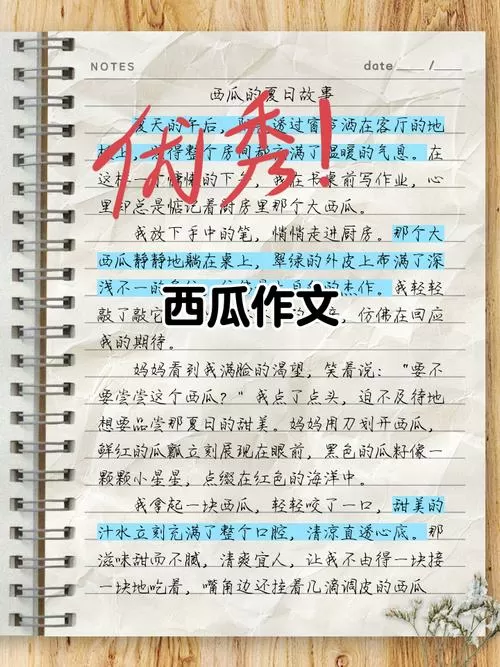 NOTES
date / 
西瓜的夏日故事
夏天的午后，阳光透过窗户洒在客厅的地
得整个房间都充满了温暖的气息。在
这样一个慵懒的下午，我在书桌前写作业，心
里却总是惦记着厨房里那个大西瓜。
优秀！
我放下手中的笔，悄悄走进厨房。那个大
西瓜静静地躺在桌上，翠绿的外皮上布满了深
浅不一的杰作。我轻轻
敲了敲它仿佛在回应
西瓜作文
我的期待。
妈妈看到我满脸的渴望，笑着说：“要不
要尝尝这个西瓜？”我点了点头，迫不及待地
想要品尝那夏日的甜美。妈妈用刀划开西瓜，
鲜红的瓜瓤立刻展现在眼前，黑色的瓜籽像一
颗颗小星星，点缀在红色的海洋中。
我拿起一块西瓜，轻轻咬了一口，甜美的
汁水立刻充满了整个口腔，清凉直透心底。那
滋味甜而不腻，清爽宜人，让我不由得一块接
一块地吃着，嘴角边还挂着几滴调皮的西瓜